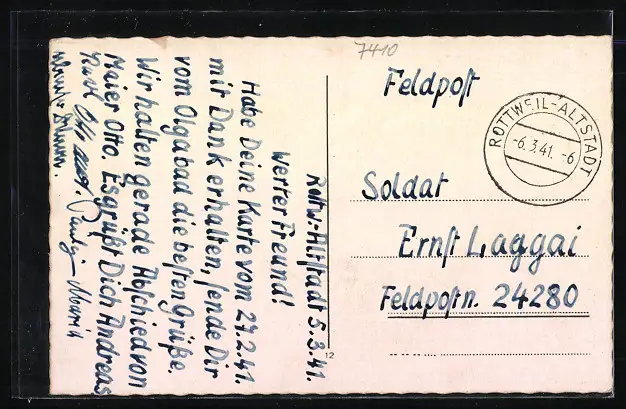 7410
Feldpost
ROTTWEIL-ALTSTADT
-6.3.41.-6
Soldat
Ernst Laggai
Feldpostn. 24280
12
Rottw.-Altstadt 5.3.41.
Werter Freund!
Habe Deine Karte vom 27.2.41.
mit Dank erhalten, sende Dir
vom Olgabad die besten Grüße.
Wir halten gerade Abschied von
Maier Otto. Es grüßt Dich Andreas
Karl Otto Maria